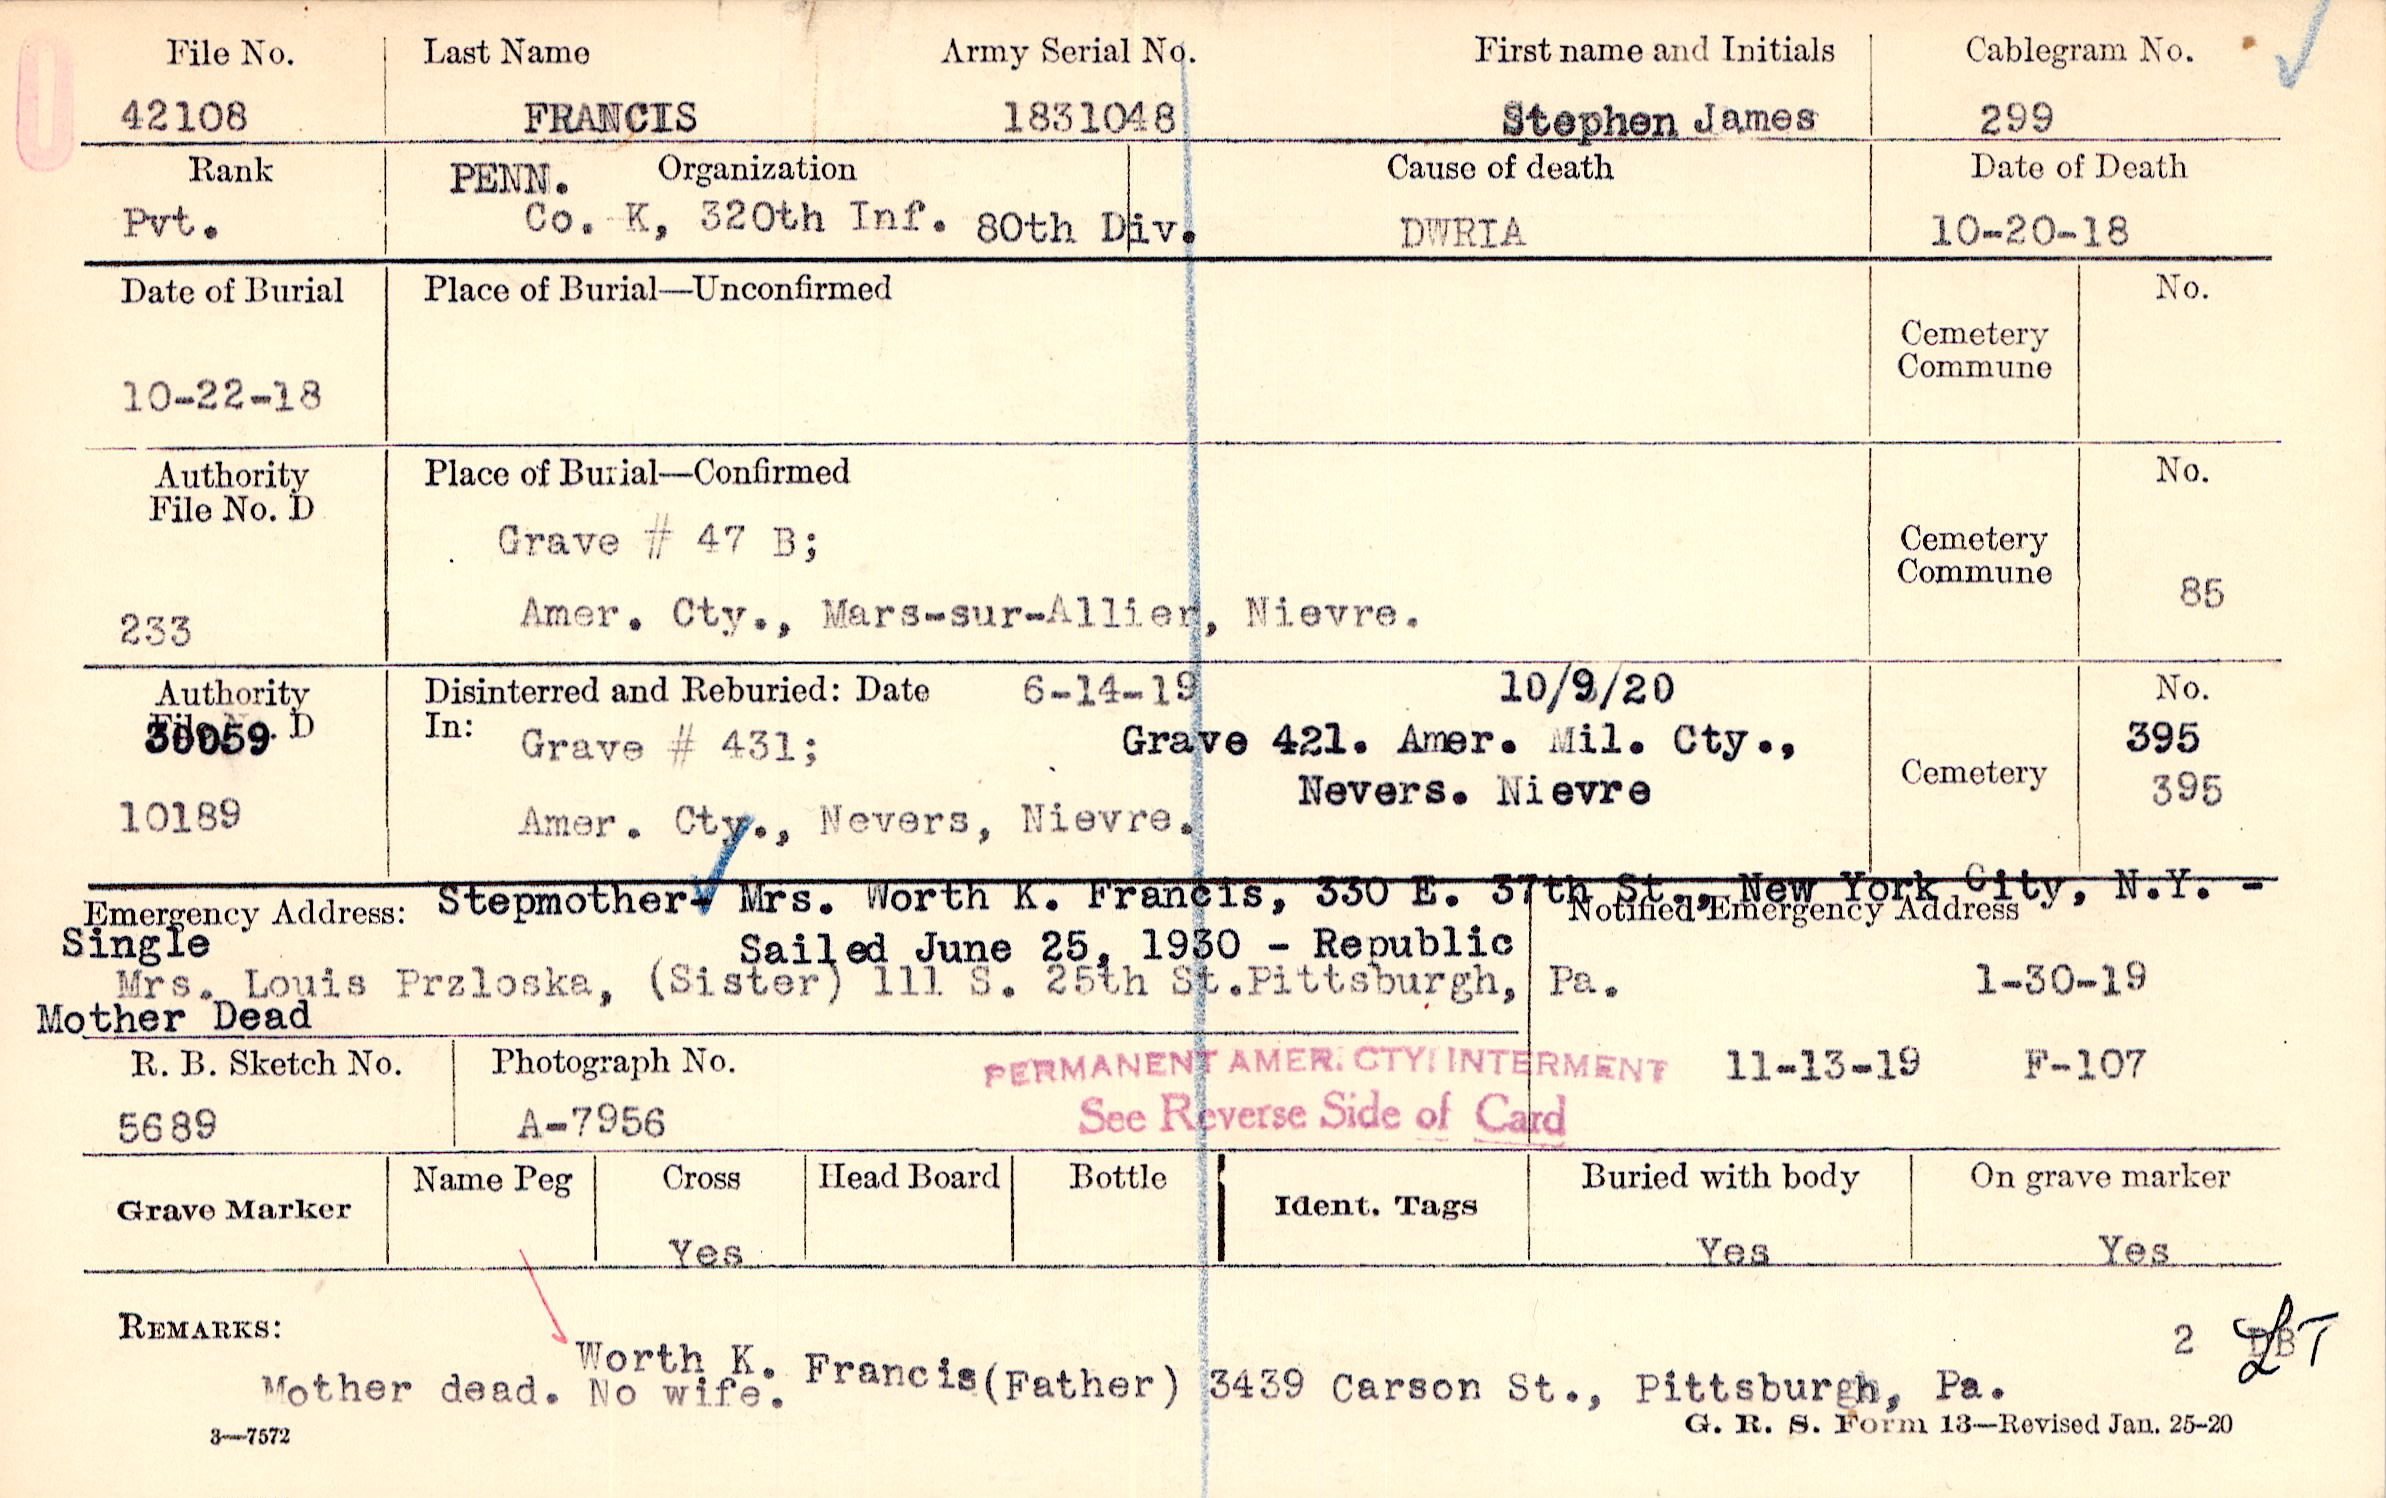 File No. Last Name Army Serial No. First name and Initials Cablegram No.
42108 FRANCIS 1831048 Stephen James 299
Rank PENN. Organization Cause of death Date of Death
Pvt. Co. K, 320th Inf. 80th Div. DWRIA 10-20-18
Date of Burial Place of Burial—Unconfirmed No.
Cemetery
Commune
10-22-18
Authority Place of Burial—Confirmed No.
File No. D
Grave # 47 B; Cemetery
Commune 85
233 Amer. Cty., Mars-sur-Allier, Nievre.
Authority Disinterred and Reburied: Date 6-14-19 10/9/20 No.
File No. D In:
30059 Grave # 431; Grave 421. Amer. Mil. Cty., 395
Nevers. Nievre Cemetery 395
10189 Amer. Cty., Nevers, Nievre.
Emergency Address: Stepmother- Mrs. Worth K. Francis, 330 E. 37th St., New York City, N.Y. -
Notified Emergency Address
Single Sailed June 25, 1930 - Republic
Mrs. Louis Przloska, (Sister) 111 S. 25th St.Pittsburgh, Pa. 1-30-19
Mother Dead
R. B. Sketch No. Photograph No. PERMANENT AMER. CTY. INTERMENT 11-13-19 F-107
5689 A-7956 See Reverse Side of Card
Grave Marker Name Peg Cross Head Board Bottle Ident. Tags Buried with body On grave marker
Yes Yes Yes
REMARKS: 2
Worth K. Francis(Father) 3439 Carson St., Pittsburgh, Pa.
Mother dead. No wife.
3—7572 G. R. S. Form 13—Revised Jan. 25-20